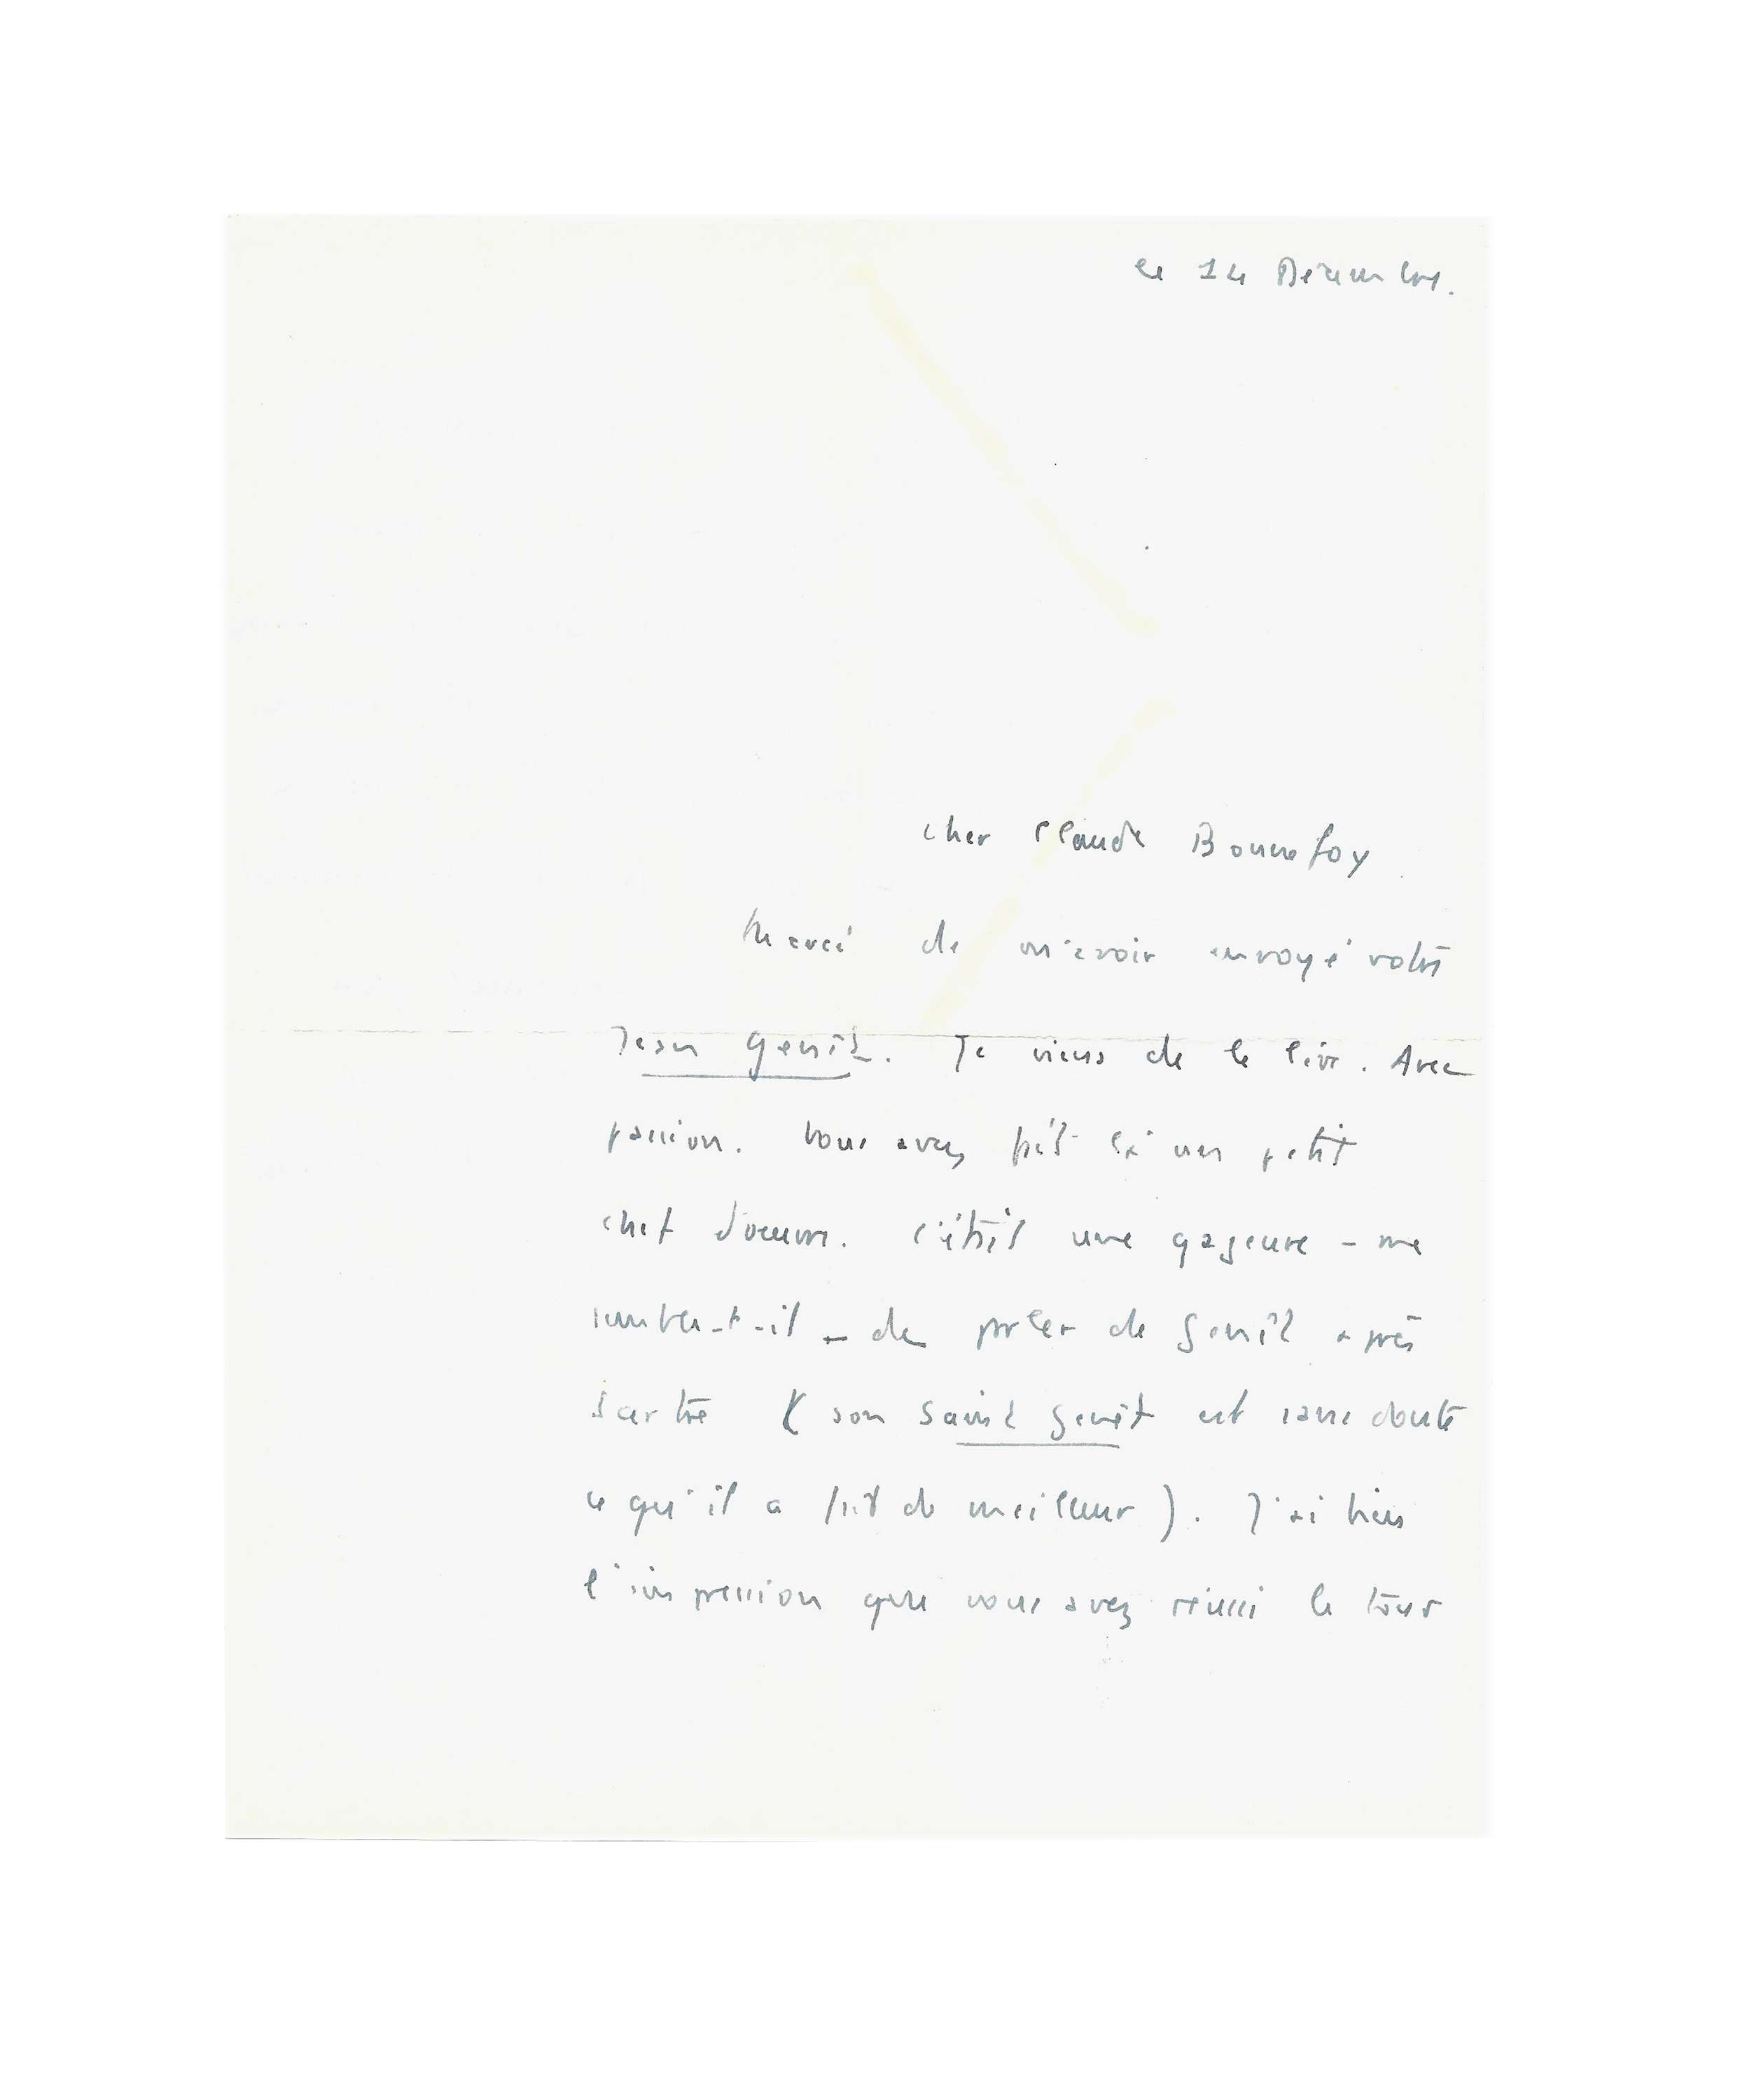 le 14 Décembre.
Cher Claude Bonnefoy
Merci de m'avoir envoyé votre
Jean Genêt. Je viens de le lire. Avec
passion. Vous avez fait là un petit
chef d'oeuvre. C'était une gageure – me
semble-t-il – de parler de Genêt après
Sartre (son Saint Genêt est sans doute
ce qu'il a fait de meilleur). J'ai bien
l'impression que vous avez réussi le tour